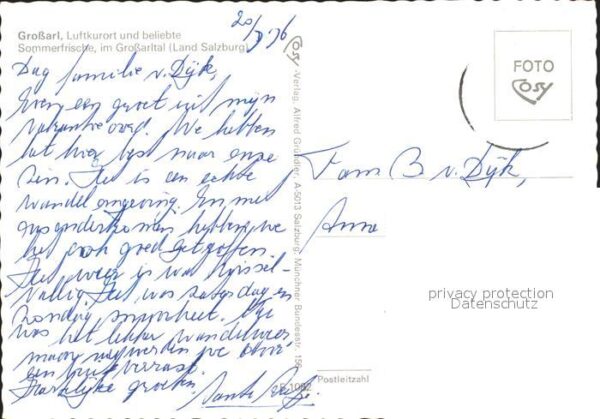 Großarl, Luftkurort und beliebte
Sommerfrische, im Großarltal (Land Salzburg)
20/7 '76
Dag familie v. Dijk,
Even een groet uit mijn
vakantie oord. We hebben
het hier best naar onze
zin. Het is een echte
wandel omgeving. En met
ons onderkomen hebben we
het ook goed getroffen.
Het weer is wat wissel-
vallig. Het was zaterdag en
zondag
was het lekker wandelweer,
maar we
een verrast.
Hartelijke groeten.
Tante
Cosy-Verlag, Alfred Gründler, A-5013 Salzburg, Münchner Bundesstr. 156
FOTO
COSY
Fam B v. Dijk,
privacy protection
Datenschutz
Postleitzahl